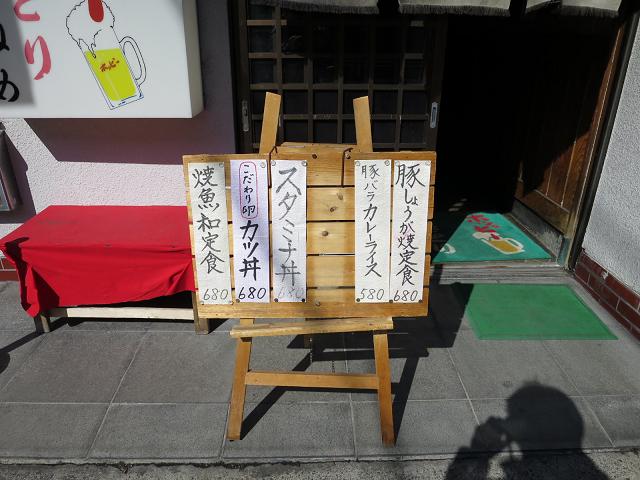 とり
ホッピー
豚しょうが焼定食
680
豚バラカレーライス
580
スタミナ丼
680
こだわり卵
カツ丼
680
焼魚和定食
680